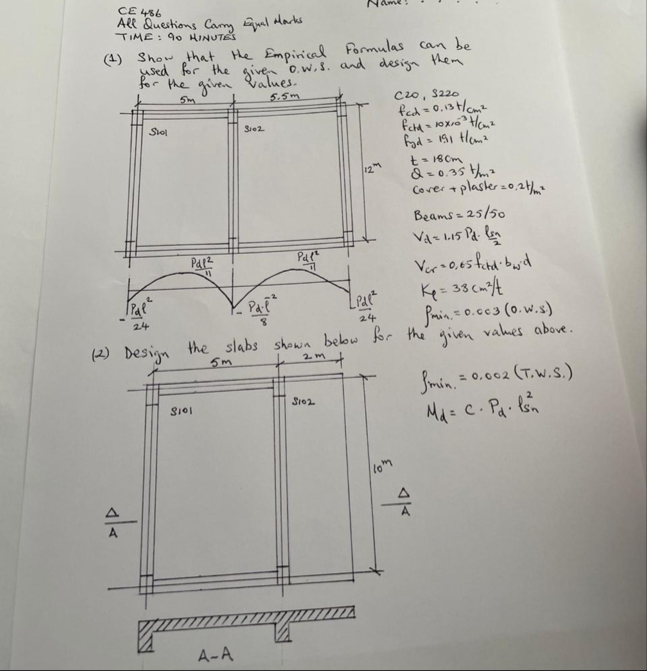 Name: . . . .
CE 486
All Questions Carry Equal Marks
TIME: 90 MINUTES
(1) Show that the Empirical Formulas can be
used for the given O.W.S. and design them
for the given values.
5m
5.5m
S101
S102
12m
C20, S220
fcd = 0.13 t/cm²
fctd = 10x10⁻³ t/cm²
fyd = 1.91 t/cm²
t = 18cm
Q = 0.35 t/m²
Cover + plaster = 0.2 t/m²
Beams = 25/50
Vd = 1.15 Pd. lsn/2
Vcr = 0.65 fctd. bw.d
Kl = 38 cm²/t
ρmin. = 0.003 (O.W.S)
Pdl²/11
Pdl²/11
- Pdl²/24
- Pd.l̄²/8
- Pdl²/24
(2) Design the slabs shown below for the given values above.
5m
2m
S101
S102
10m
ρmin. = 0.002 (T.W.S.)
Md = C . Pd . lsn²
Δ
A
Δ
A
A-A